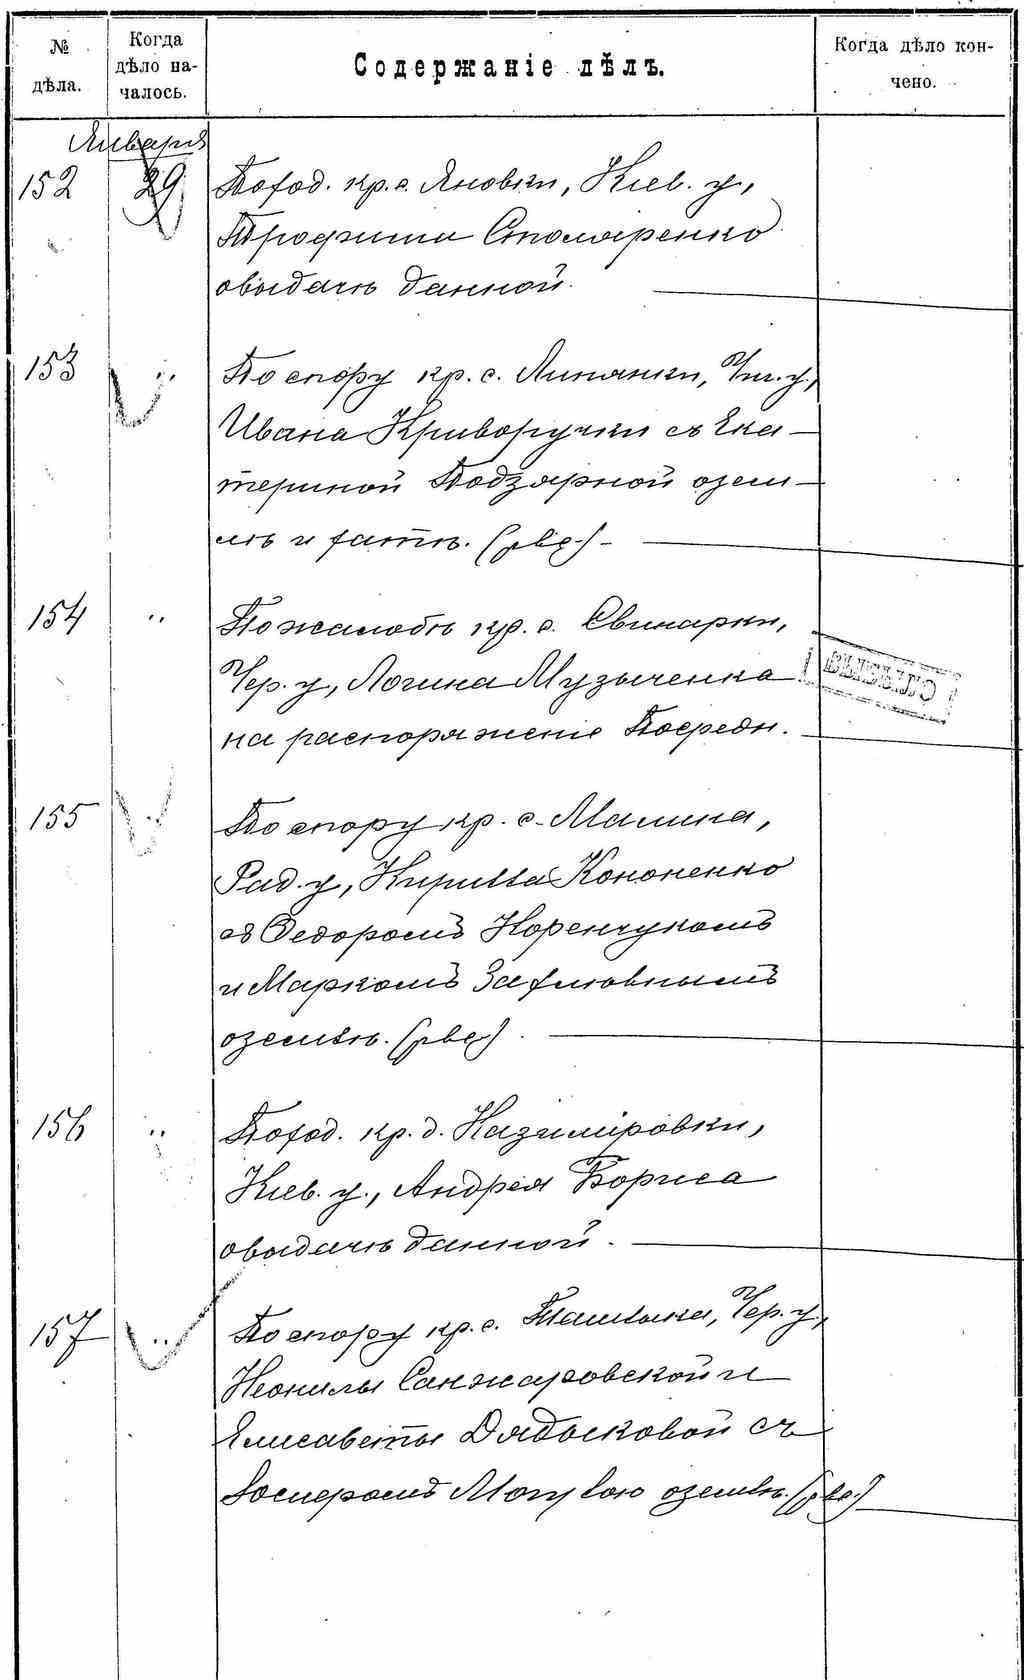 № дѣла.
Когда дѣло на-
чалось.
Содержаніе дѣлъ.
Когда дѣло кон-
чено.
Января
152 29 По ход. кр. с. Яновки, Кіев. у.,
Трофима Столяренко
о выдачѣ данной.
153 " По спору кр. с. Липянки, Чиг. у.,
Ивана Криворучки съ Ека-
териной Подзярной о зем-
лѣ и хатѣ. (рве)
154 " По жалобѣ кр. с. Свинарки,
Чер. у., Логина Музыченка
на распоряженіе Посредн.
155 " По спору кр. с. Малина,
Рад. у., Кирилла Кононенко
съ Федоромъ Коренчукомъ
и Маркомъ Захлювнымъ
о землѣ. (рве)
156 " По ход. кр. д. Казиміровки,
Кіев. у., Андрея Бориса
о выдачѣ данной.
157 " По спору кр. с. Ташлыка, Чер. у.,
Неонилы Санжаровской и
Елисаветы Дядьковой съ
о землѣ. (рве)